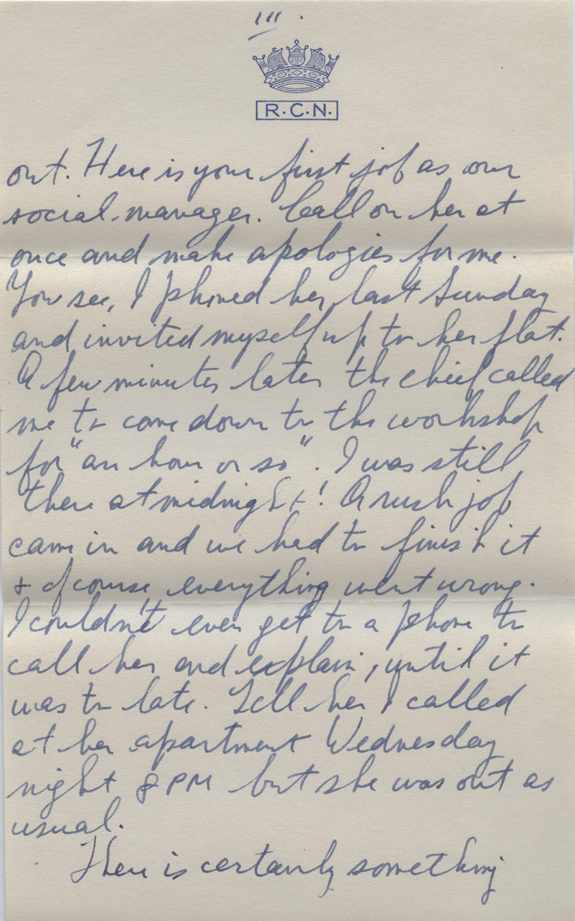 III.
R.C.N.
out. Here is your first job as our
social manager. Call on her at
once and make apologies for me.
You see, I phoned her last Sunday
and invited myself up to her flat.
A few minutes later the chief called
me to come down to the workshop
for "an hour or so". I was still
there at midnight! A rush job
came in and we had to finish it
& of course, everything went wrong.
I couldn't even get to a phone to
call her and explain, until it
was to late. Tell her I called
at her apartment Wednesday
night 8 PM but she was out as
usual.
There is certainly something